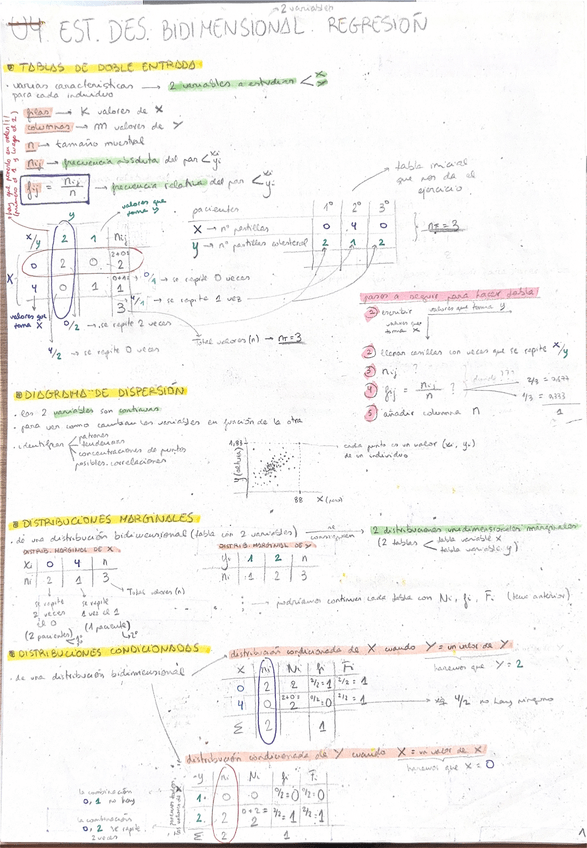 2 variables
U4 EST. DES. BIDIMENSIONAL. REGRESIÓN
TABLAS DE DOBLE ENTRADA
varias características → 2 variables a estudiar < x y
para cada individuo
filas → K valores de X
columnas → M valores de Y
n → tamaño muestral
nij → frecuencia absoluta del par < xi yi
fij = nij / n → frecuencia relativa del par < xi yi
tabla inicial
que nos da el
ejercicio
valores que
toma Y
y
pacientes 1º 2º 3º
X → nº pastillas 0 4 0
Y → nº pastillas colesterol 2 1 2
n = 3
x/y 2 1 nij
0 2 0 2+0= 2
4 0 1 0+1= 1
3
X
valores que
toma X
0/1 → se repite 0 veces
4/1 → se repite 1 vez
0/2 → se repite 2 veces
4/2 → se repite 0 veces
Total valores (n) → n = 3
pasos a seguir para hacer tabla
1 escribir valores que toma y
valores que
toma x
2 llenar casillas con veces que se repite x/y
3 nij ?
4 fij = nij / n ?
5 añadir columna n
1
DIAGRAMA DE DISPERSIÓN
las 2 variables son continuas
para ver como cambian las variables en función de la otra
identificar < patrones
tendencias
concentraciones de puntos
posibles correlaciones
4,83
88
cada punto es un valor (xi, yi)
de un individuo
DISTRIBUCIONES MARGINALES
de una distribución bidimensional (tabla con 2 variables) se consiguen 2 distribuciones unidimensionales marginales
(2 tablas < tabla variable x
tabla variable y)
DISTRIB. MARGINAL DE X
xi 0 4 n
ni 2 1 3
Total valores (n)
se repite
2 veces
el 0
(2 pacientes)
se repite
1 vez el 4
(1 paciente)
DISTRIB. MARGINAL DE Y
yi 1 2 n
ni 1 2 3
podríamos continuar cada tabla con Ni, fi, Fi (tema anterior)
DISTRIBUCIONES CONDICIONADAS
de una distribución bidimensional
distribución condicionada de X cuando Y = un valor de Y
haremos que Y = 2
X ni Ni fi Fi
0 2 2 2/2 = 1 2/2 = 1
4 0 2+0= 2 0/2 = 0 2/2 = 1
Σ 2 1
4/2 no hay ninguno
distribución condicionada de Y cuando X = un valor de X
haremos que X = 0
Y ni Ni fi Fi
1 0 0 0/2 = 0 0/2 = 0
2 2 0+2= 2 2/2 = 1 2/2 = 1
Σ 2 1
la combinación
0, 1 no hay
la combinación
0, 2 se repite
2 veces
1